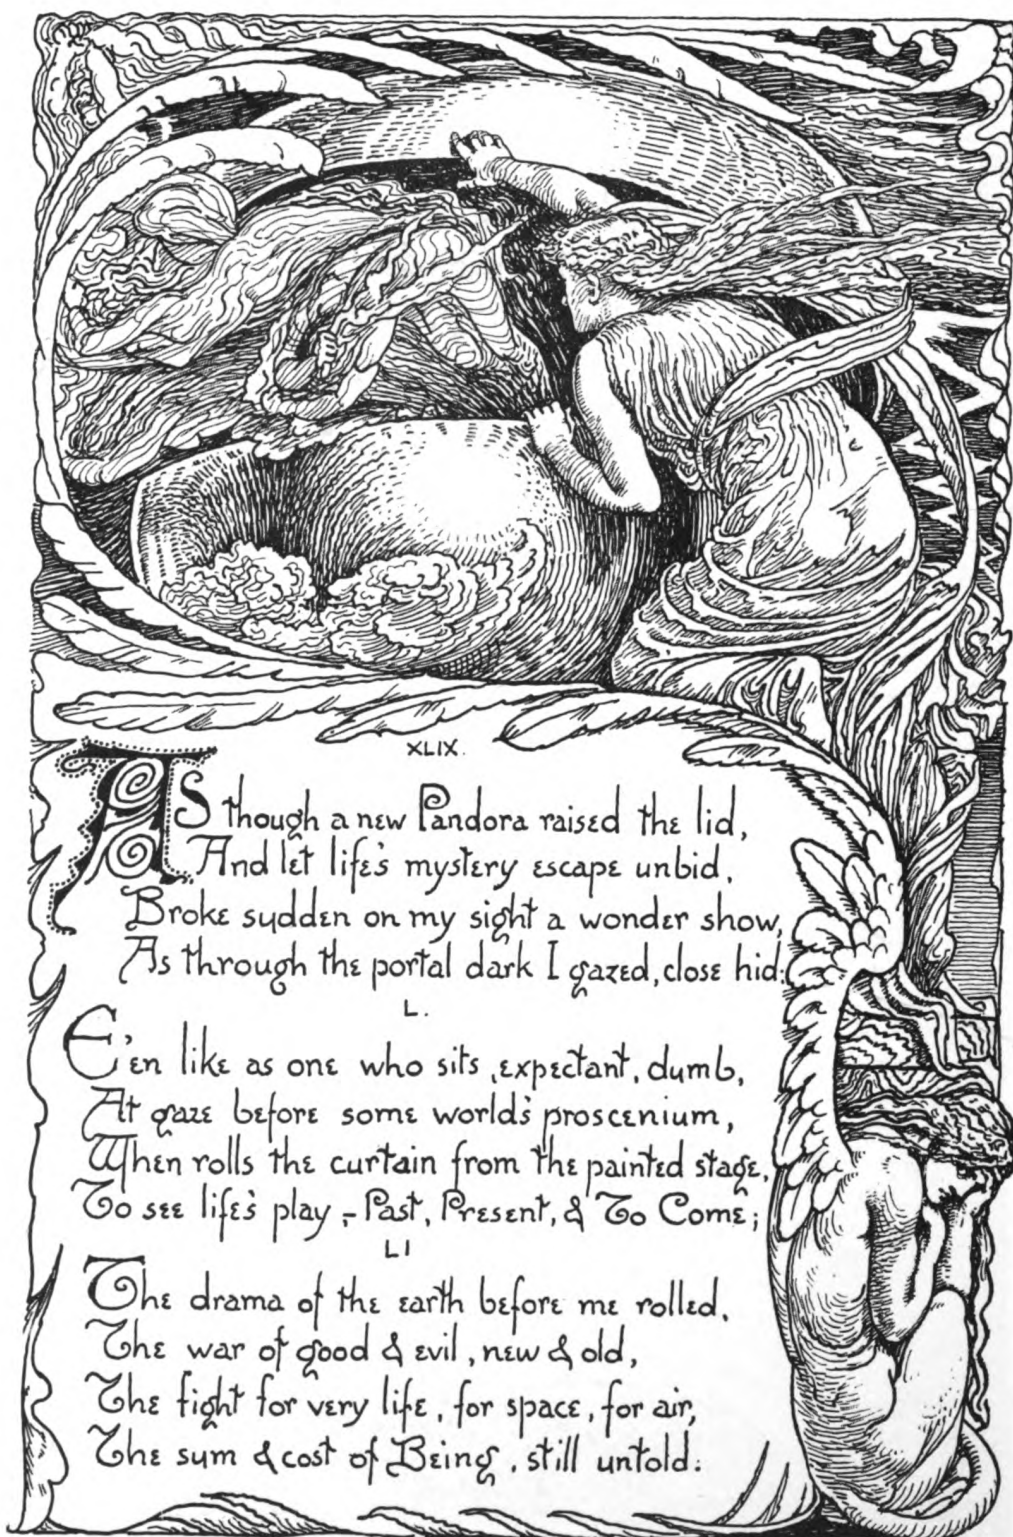 XLIX.
AS though a new Pandora raised the lid,
And let life's mystery escape unbid,
Broke sudden on my sight a wonder show,
As through the portal dark I gazed, close hid:
L.
E'en like as one who sits, expectant, dumb,
At gaze before some world's proscenium,
When rolls the curtain from the painted stage,
To see life's play,- Past, Present, & To Come;
LI
The drama of the earth before me rolled,
The war of good & evil, new & old,
The fight for very life, for space, for air,
The sum & cost of Being, still untold: